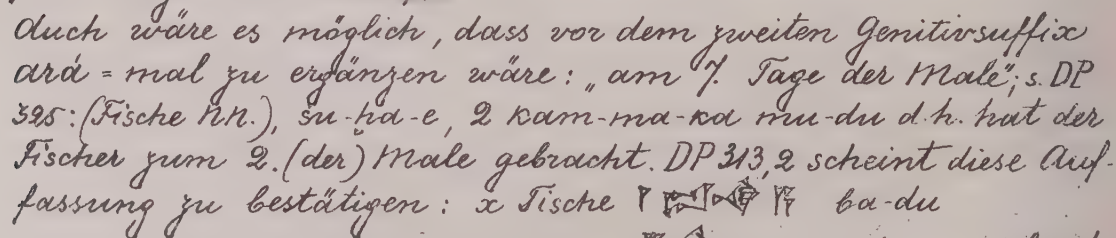 Auch wäre es möglich, dass vor dem zweiten Genitivsuffix
ará = mal zu ergänzen wäre: „am 7. Tage der Male"; s. DP
325: (Fische NN.), šu-ḫa-e, 2 kam-ma-ka mu-du d.h. hat der
Fischer zum 2. (der) Male gebracht. DP 313,2 scheint diese Auf-
fassung zu bestätigen: x Fische ba-du